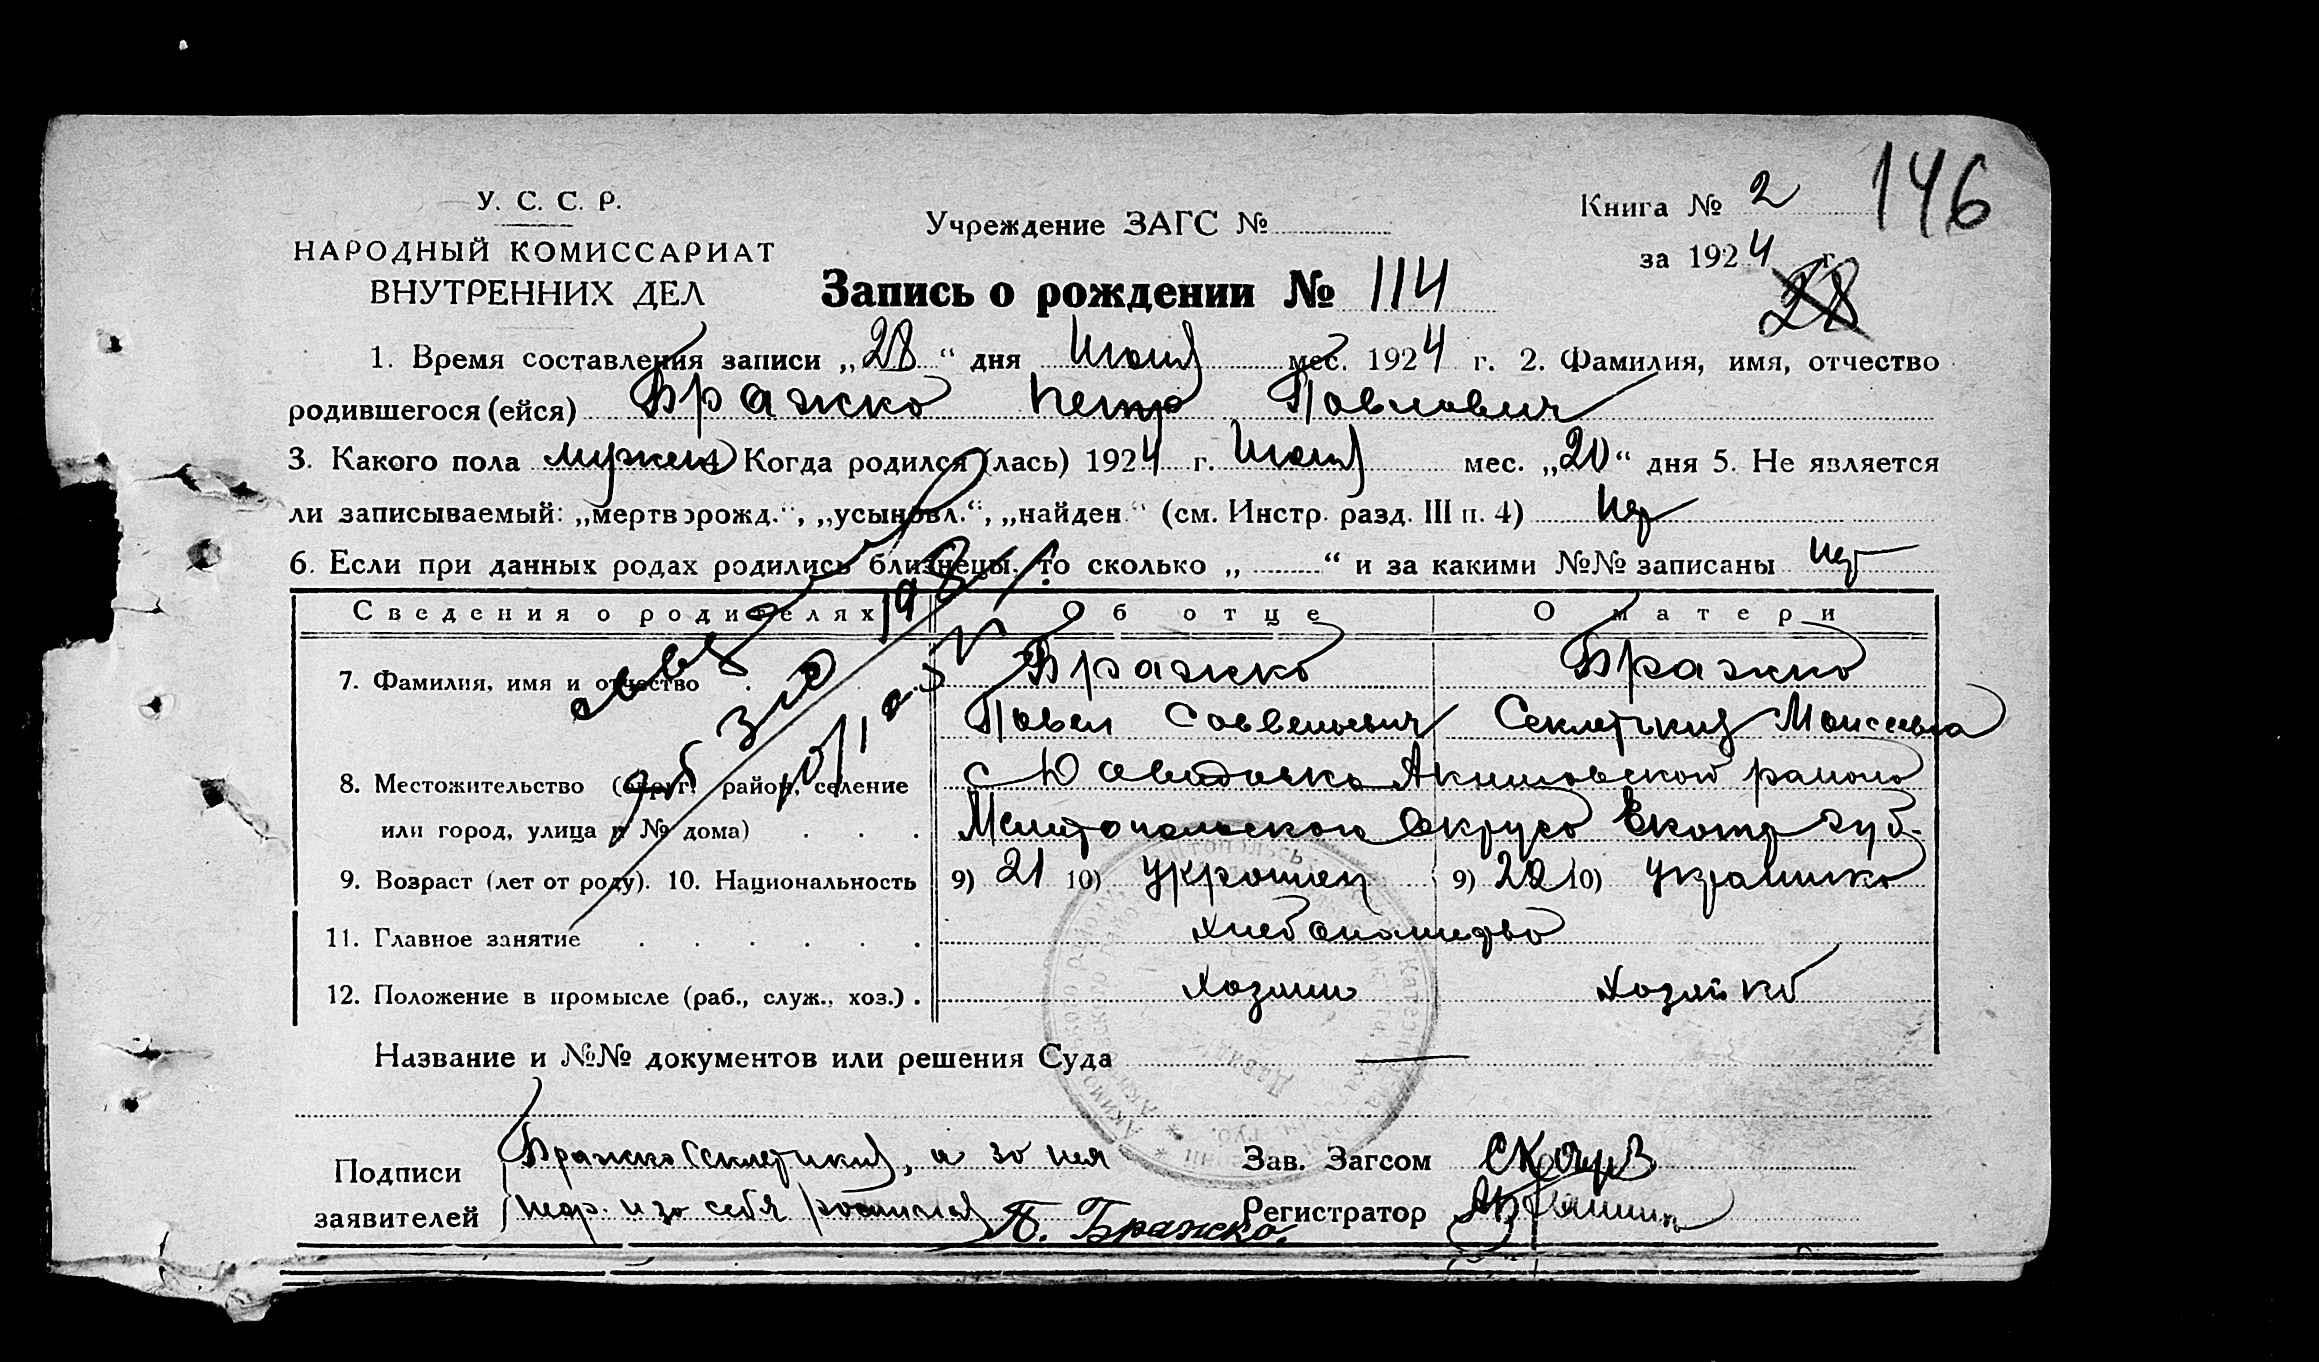 146
У. С. С. Р.
НАРОДНЫЙ КОМИССАРИАТ
ВНУТРЕННИХ ДЕЛ
Учреждение ЗАГС №
Книга № 2
за 1924 г.
28
Запись о рождении № 114
1. Время составления записи „28“ дня Июля мес. 1924 г. 2. Фамилия, имя, отчество
родившегося (ейся) Бражко Петр Павлович
3. Какого пола мужск 4 Когда родился (лась) 1924 г. Июля мес. „20“ дня 5. Не является
ли записываемый: „мертворожд.“, „усыновл.“, „найден“ (см. Инстр. разд. III п. 4) нет
6. Если при данных родах родились близнецы, то сколько „ “ и за какими №№ записаны нет
Сведения о родителях Об отце О матери
7. Фамилия, имя и отчество Бражко Бражко
Павел Савельевич Секлетикия Моисеевна
8. Местожительство (округ, район, селение с Давидовка Акимовского района
или город, улица и № дома) Мелитопольского Округа Екатер губ.
9. Возраст (лет от роду). 10. Национальность 9) 21 10) украинец 9) 22 10) украинка
11. Главное занятие хлебопашество
12. Положение в промысле (раб., служ., хоз.) хозяин хозяйка
Название и №№ документов или решения Суда —
Подписи заявителей Бражко Секлетикия, а за нея
негр. и за себя росписался П. Бражко.
Зав. Загсом
Регистратор